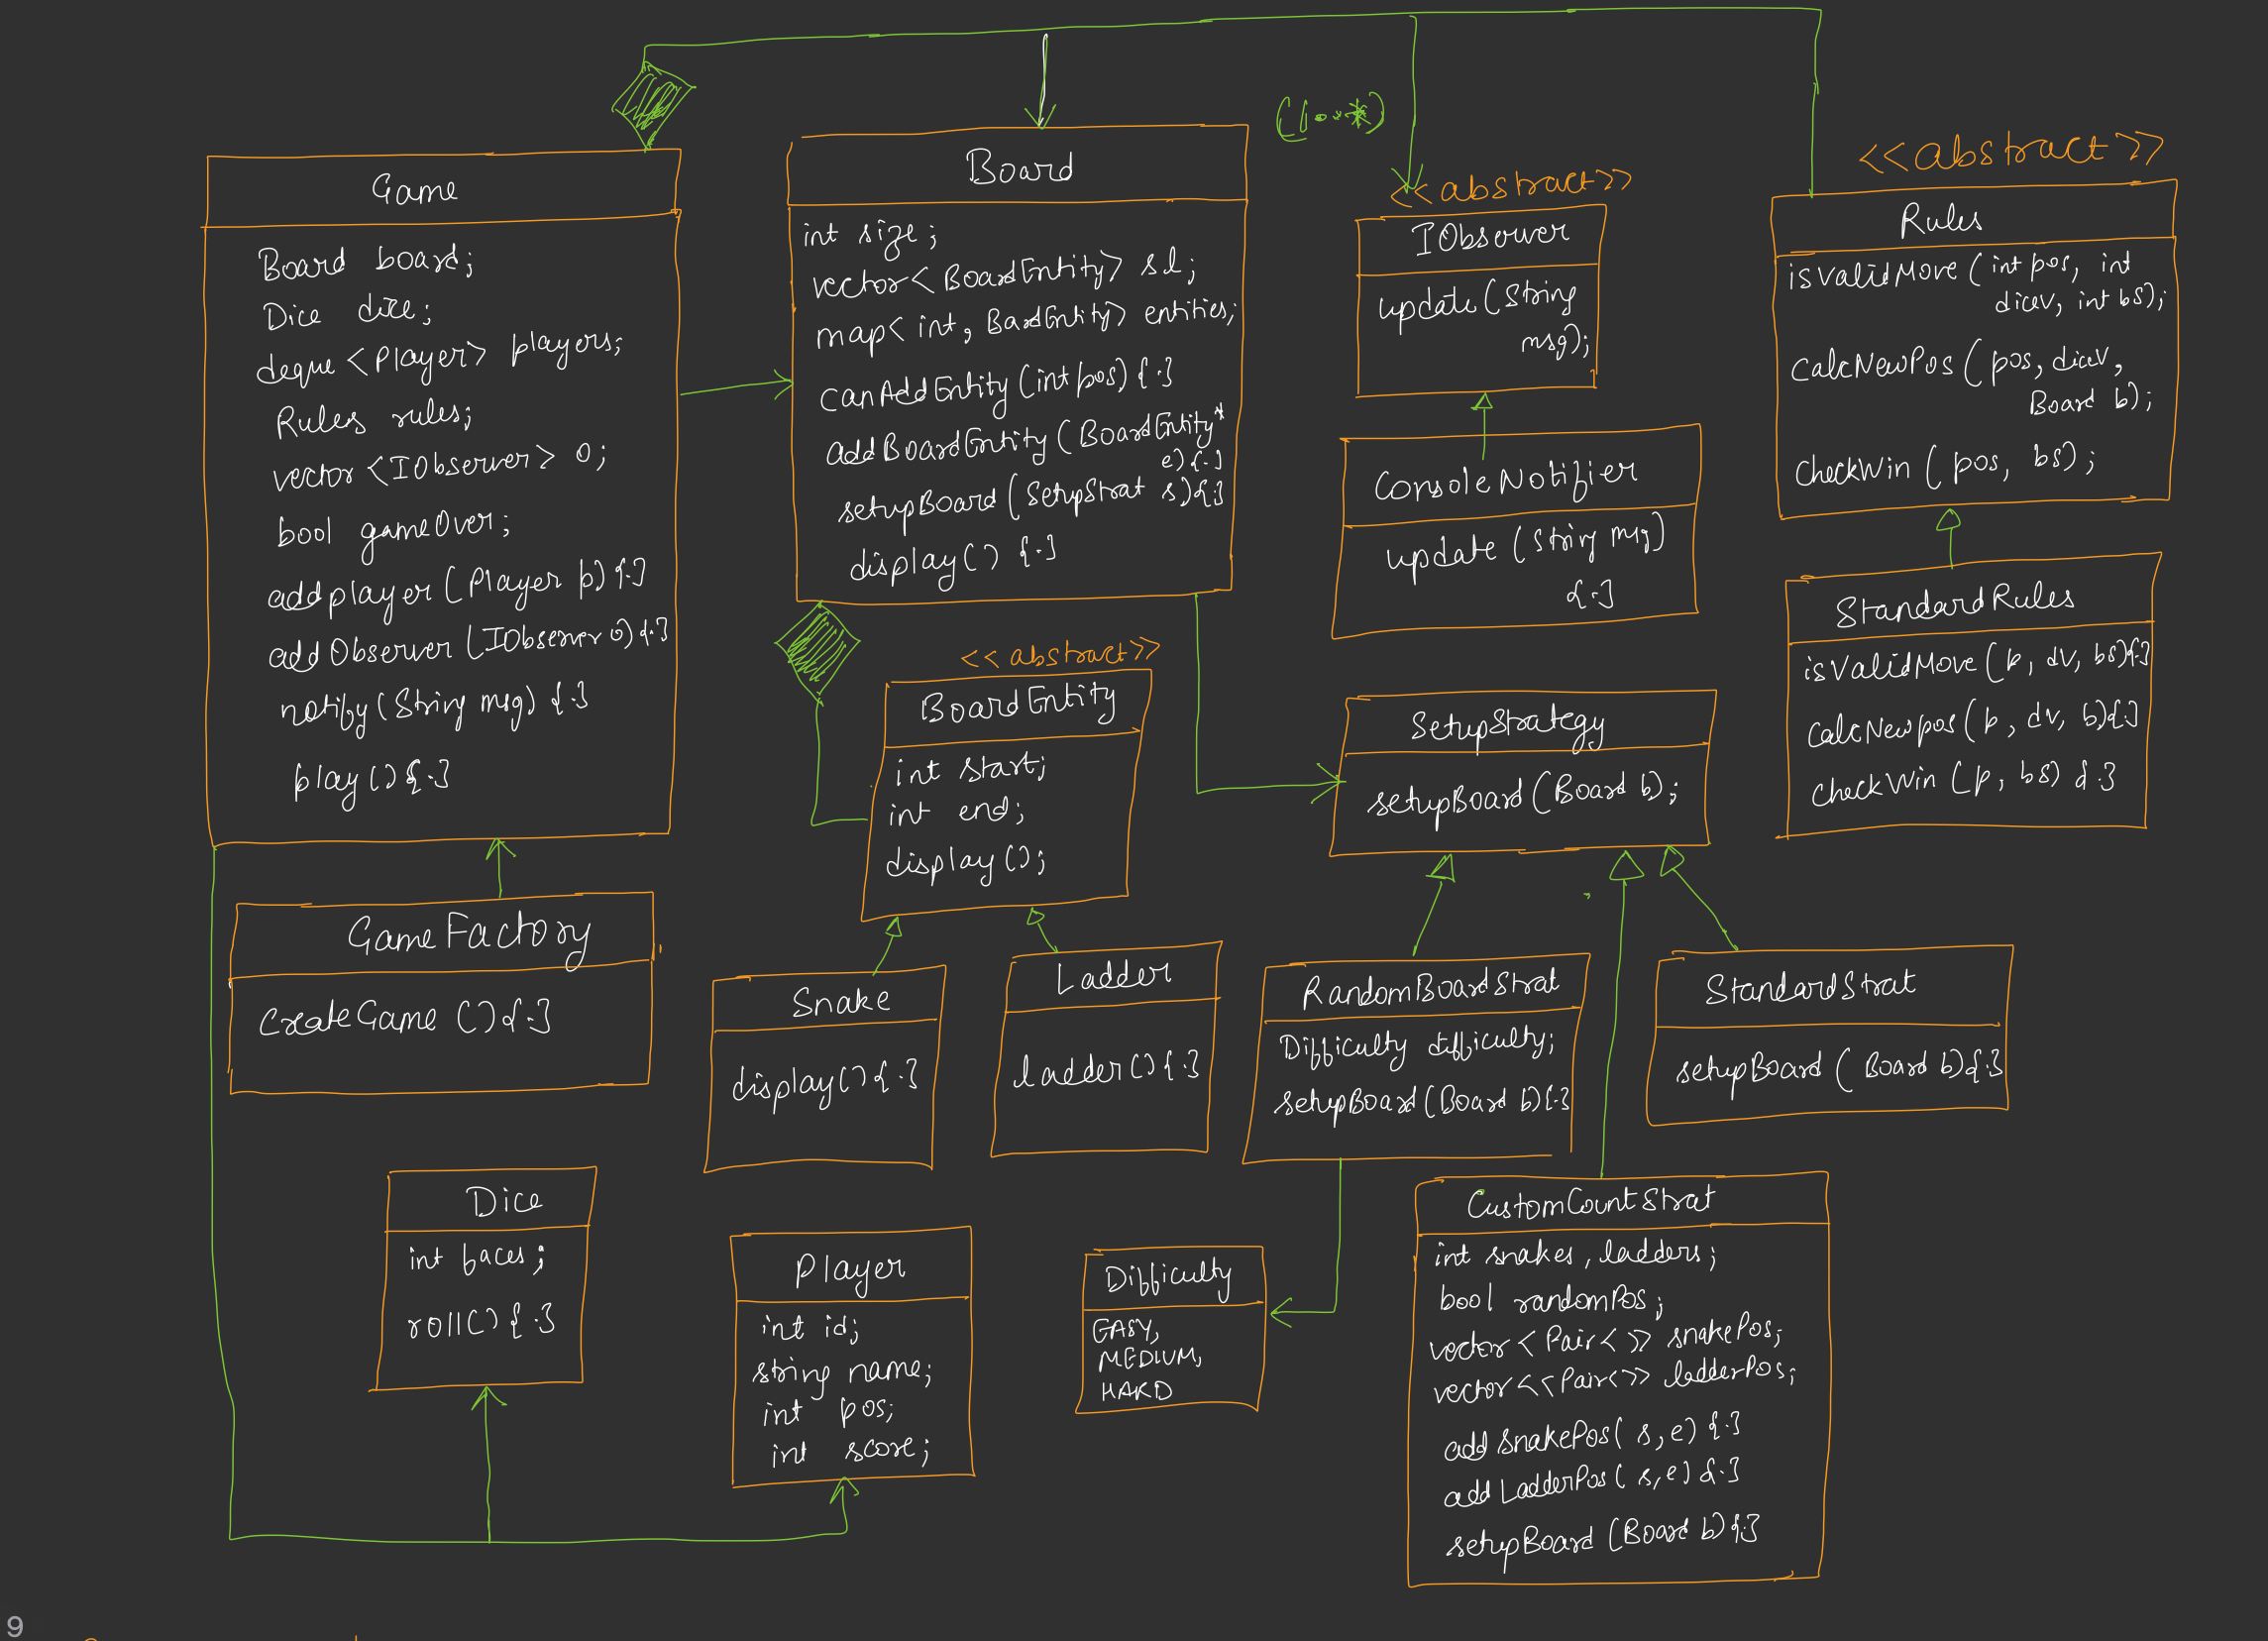 Game
Board board;
Dice dice;
deque <Player> players;
Rules rules;
vector <IObserver> o;
bool gameOver;
addplayer (Player p) {.}
addObserver (IObserver o) {.}
notify (String msg) {.}
play () {.}
Board
int size;
vector <BoardEntity> sl;
map < int, BoardEntity> entities;
canAddEntity (int pos) {.}
addBoardEntity (BoardEntity*
e) {.}
setupBoard (SetupStrat s) {.}
display () {.}
(1..*)
<<abstract>>
IObserver
update (String
msg);
<<abstract>>
Rules
isValidMove (int pos, int
dicev, int bs);
calcNewPos (pos, dicev,
Board b);
checkWin (pos, bs);
ConsoleNotifier
update (String msg)
{.}
StandardRules
isValidMove (p, dv, bs) {.}
calcNewpos (p, dv, b) {.}
checkWin (p, bs) {.}
<<abstract>>
BoardEntity
int start;
int end;
display ();
SetupStrategy
setupBoard (Board b);
GameFactory
CreateGame () {.}
Snake
display () {.}
Ladder
ladder () {.}
RandomBoardStrat
Difficulty difficulty;
setupBoard (Board b) {.}
StandardStrat
setupBoard (Board b) {.}
Dice
int faces;
roll () {.}
Player
int id;
string name;
int pos;
int score;
Difficulty
EASY,
MEDIUM,
HARD
CustomCountStrat
int snakes, ladders;
bool randomPos;
vector < Pair < >> snakePos;
vector << Pair < >> ladderPos;
add SnakePos (s, e) {.}
add LadderPos (s, e) {.}
setupBoard (Board b) {.}
9